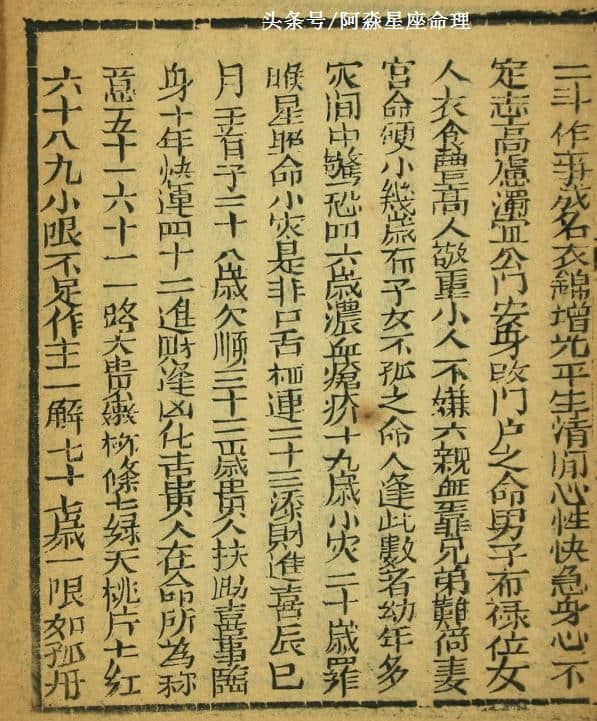 头条号/阿淼星座命理
二斗作事成名衣錦增光平生清閒心性快急身心不
定志高慮濁宜公門安身改門户之命男子有禄位女
人衣食豊高人敬重小人不嫌六親無靠兄弟難倚妻
宫命硬小幾歲有子女不孤之命人逢此數者幼年多
灾间中驚恐四六歲濃血瘡疥十九歲小灾二十歲
睺星照命小灾是非口舌連二十三添財進喜辰巳
月有子二十八歲欠順三十三歲貴人扶助喜事臨
身十年快運四十二進財逢凶化吉貴人在命所為称
意五十一六十二一路大貴嫩柳條七绿天桃片七红
六十八九小限不足作主一解七十歲一限如孤舟